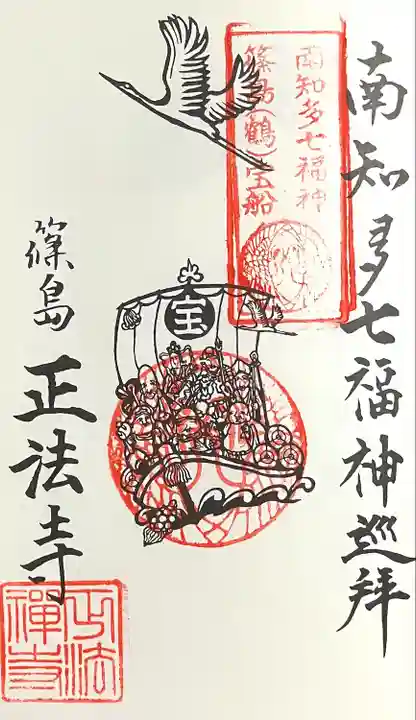 南知多七福神巡拝
南知多七福神
篠島(鶴)宝船
宝
篠島
正法寺
正法
禅寺